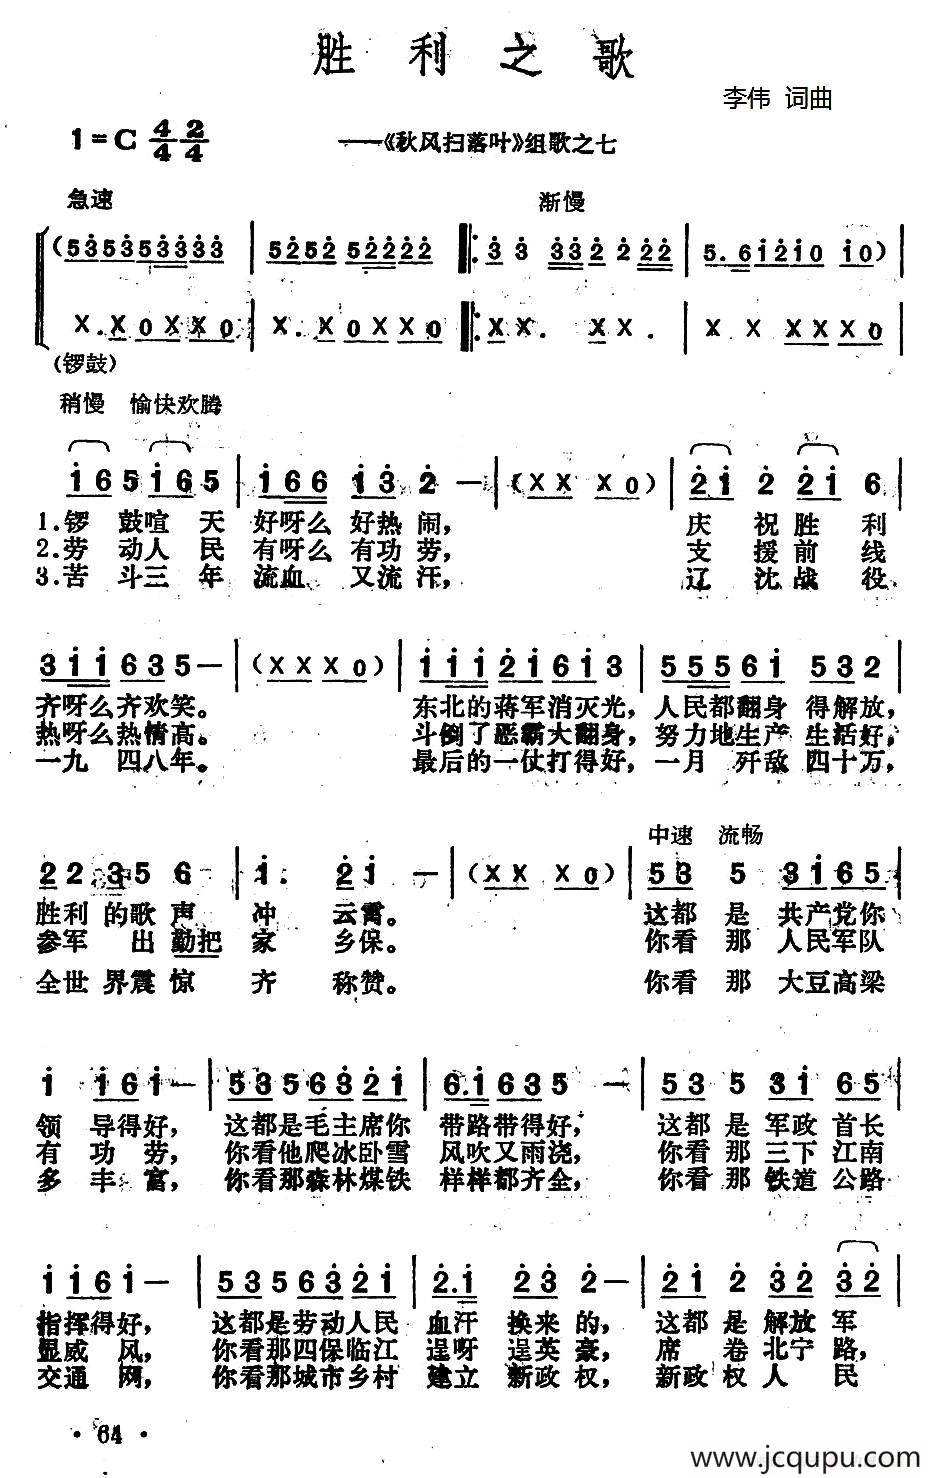 胜利之歌
李伟 词曲
1=C 4/4 2/4
——《秋风扫落叶》组歌之七
急速 渐慢
(5353533333 | 5252 52222 |: 3 3 332 222 | 5.61210 10) |
X.X0XX0 | X.X X0XX0 |: XX. XX. | X X XXX0 |
(锣鼓)
稍慢 愉快欢腾
165 165 | 166 13 2 — | (XX X0) | 21 2 21 6 |
1.锣鼓喧天 好呀么好热闹, 庆祝胜利
2.劳动人民 有呀么有功劳, 支援前线
3.苦斗三年 流血 又流汗, 辽沈战役
311 635 — | (XX X0) | 111 21 61 3 | 555 61 53 2 |
齐呀么齐欢笑。 东北的蒋军消灭光, 人民都翻身 得解放,
热呀么热情高。 斗倒了恶霸大翻身, 努力地生产 生活好,
一九 四八年。 最后的一仗打得好, 一月 歼敌 四十万,
中速 流畅
22 35 6 | 1. 21 — | (XX XX0) | 53 5 3165 |
胜利 的歌声 冲 云霄。 这都 是 共产党你
参军 出勤把 家 乡保。 你看 那 人民军队
全世 界震惊 齐 称赞。 你看 那 大豆高粱
1 161 — | 5356321 | 6.1635 — | 53 5 31 65 |
领 导得好, 这都是毛主席你 带路带得好, 这都 是 军政 首长
有 功 劳, 你看他爬冰卧雪 风吹又雨浇, 你看 那 三下 江南
多 丰 富, 你看那森林煤铁 样样都齐全, 你看 那 铁道 公路
1 161 — | 5356321 | 2.1 23 2— | 21 2 32 32 |
指挥得好, 这都是劳动人民 血汗 换来的, 这都 是 解放 军
显威 风, 你看那四保临江 逞呀 逞英豪, 席 卷 北宁 路,
交通 网, 你看那城市乡村 建立 新政权, 新政 权 人 民
· 64 ·
www.jcqupu.com